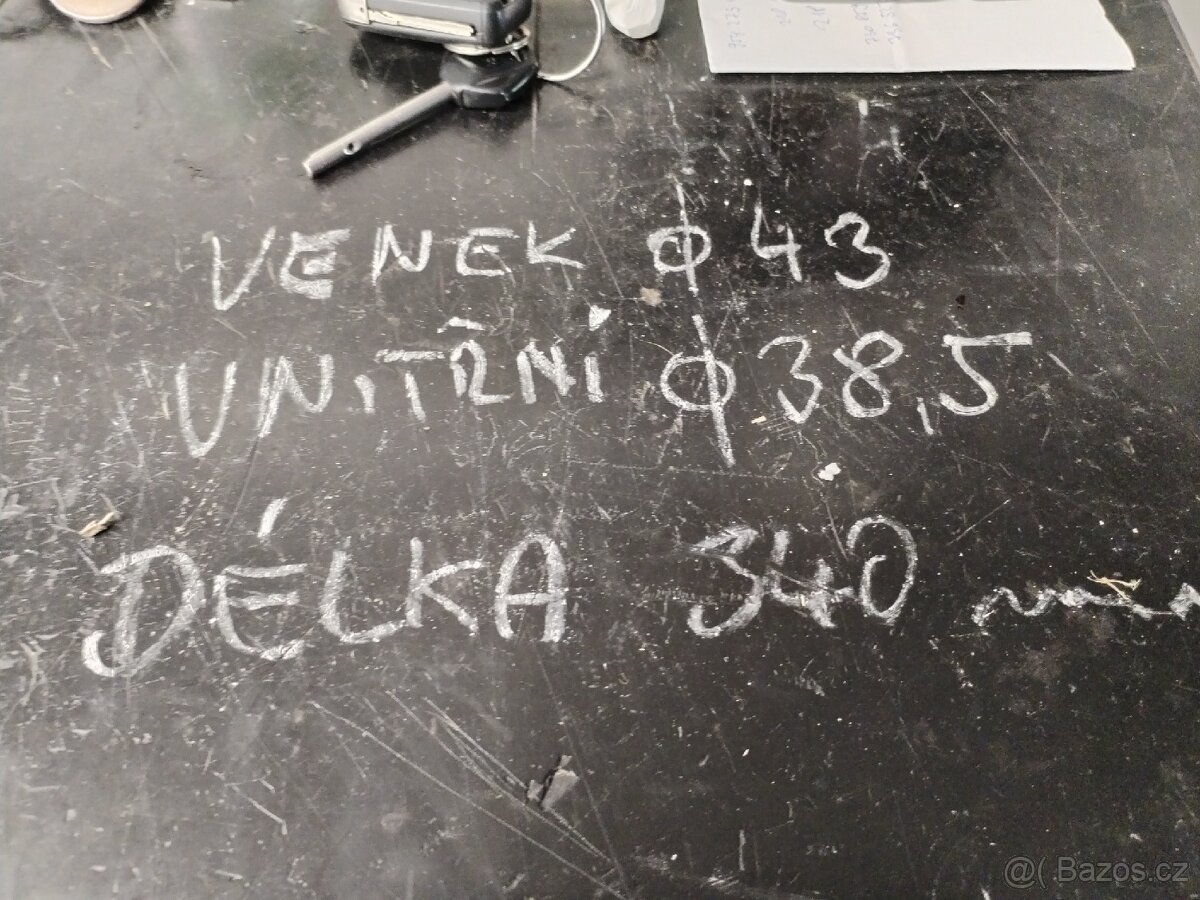 VENEK φ 43
UNITŘNÍ φ 38,5
DÉLKA 340 mm
@( Bazoš.cz